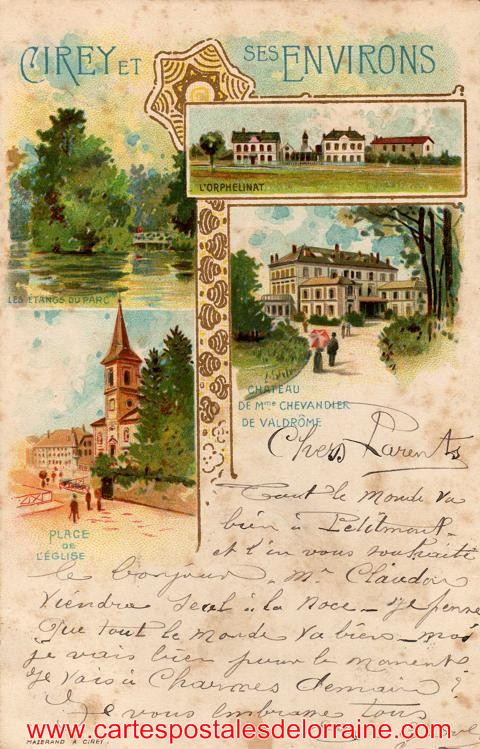 CIREY ET SES ENVIRONS
L'ORPHELINAT
LES ETANGS DU PARC
CHATEAU
DE Mme CHEVANDIER
DE VALDRÔME
PLACE
DE
L'ÉGLISE
Chers Parents
Tout le monde va
bien à Petitmont
et l'on vous souhaite
le bonjour. Mr Claudon
viendra seul à la noce - Je pense
Que tout le monde va bien - moi
je vais bien pour le moment
Je vais à Charmes demain
Je vous embrasse tous
MAZERAND A CIREY.
www.cartespostalesdelorraine.com